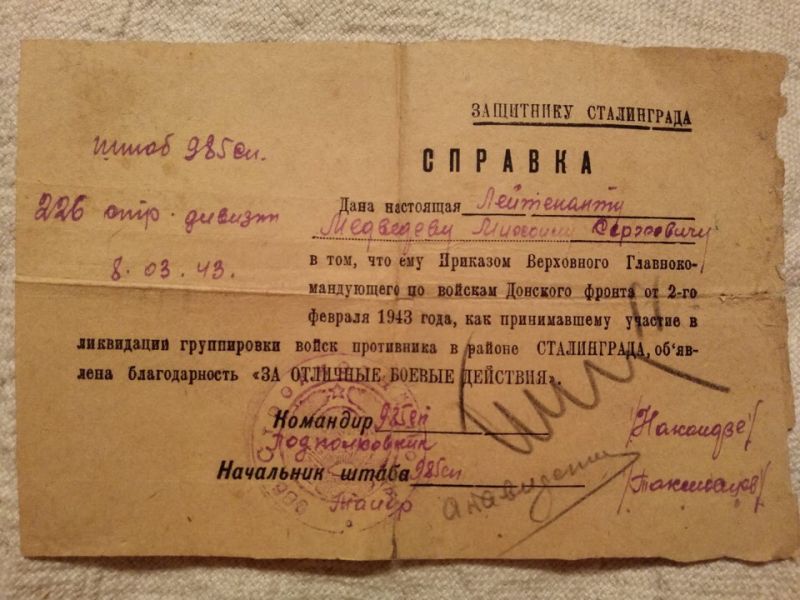 ЗАЩИТНИКУ СТАЛИНГРАДА
СПРАВКА
Штаб 985 сп.
226 стр. дивизии
8.03.43.
Дана настоящая Лейтенанту
Медведеву Сергеевичу
в том, что ему Приказом Верховного Главноко-
мандующего по войскам Донского фронта от 2-го
февраля 1943 года, как принимавшему участие в
ликвидаций группировки войск противника в районе СТАЛИНГРАДА, об'яв-
лена благодарность «ЗА ОТЛИЧНЫЕ БОЕВЫЕ ДЕЙСТВИЯ».
Командир 985 сп
Подполковник
Начальник штаба 985 сп
Майор